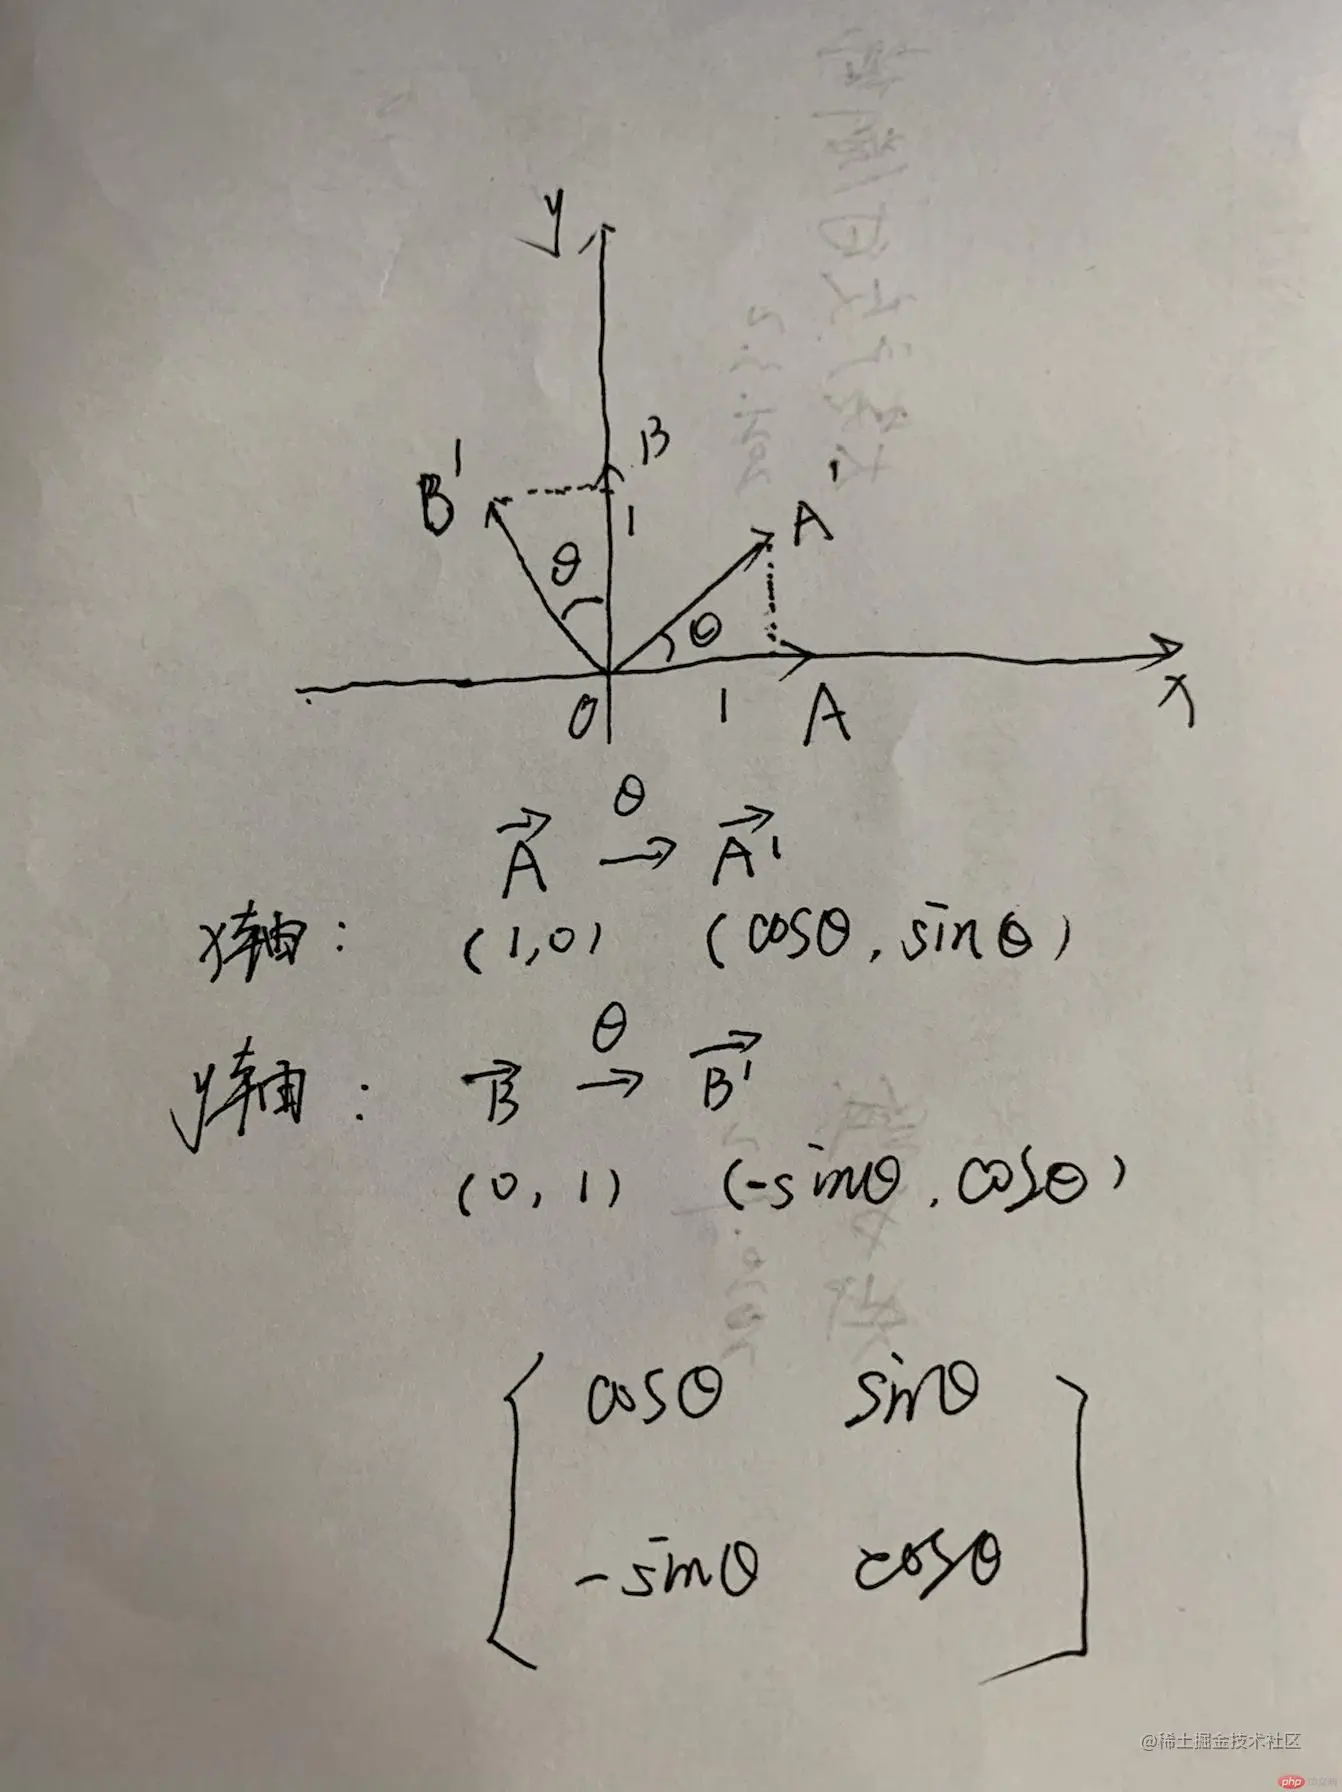 y
B
B'
1
A'
θ
θ
O
1
A
x
θ
A → A'
x轴: (1,0) (cosθ, sinθ)
θ
y轴: B → B'
(0, 1) (-sinθ, cosθ)
cosθ sinθ
-sinθ cosθ
@稀土掘金技术社区
php